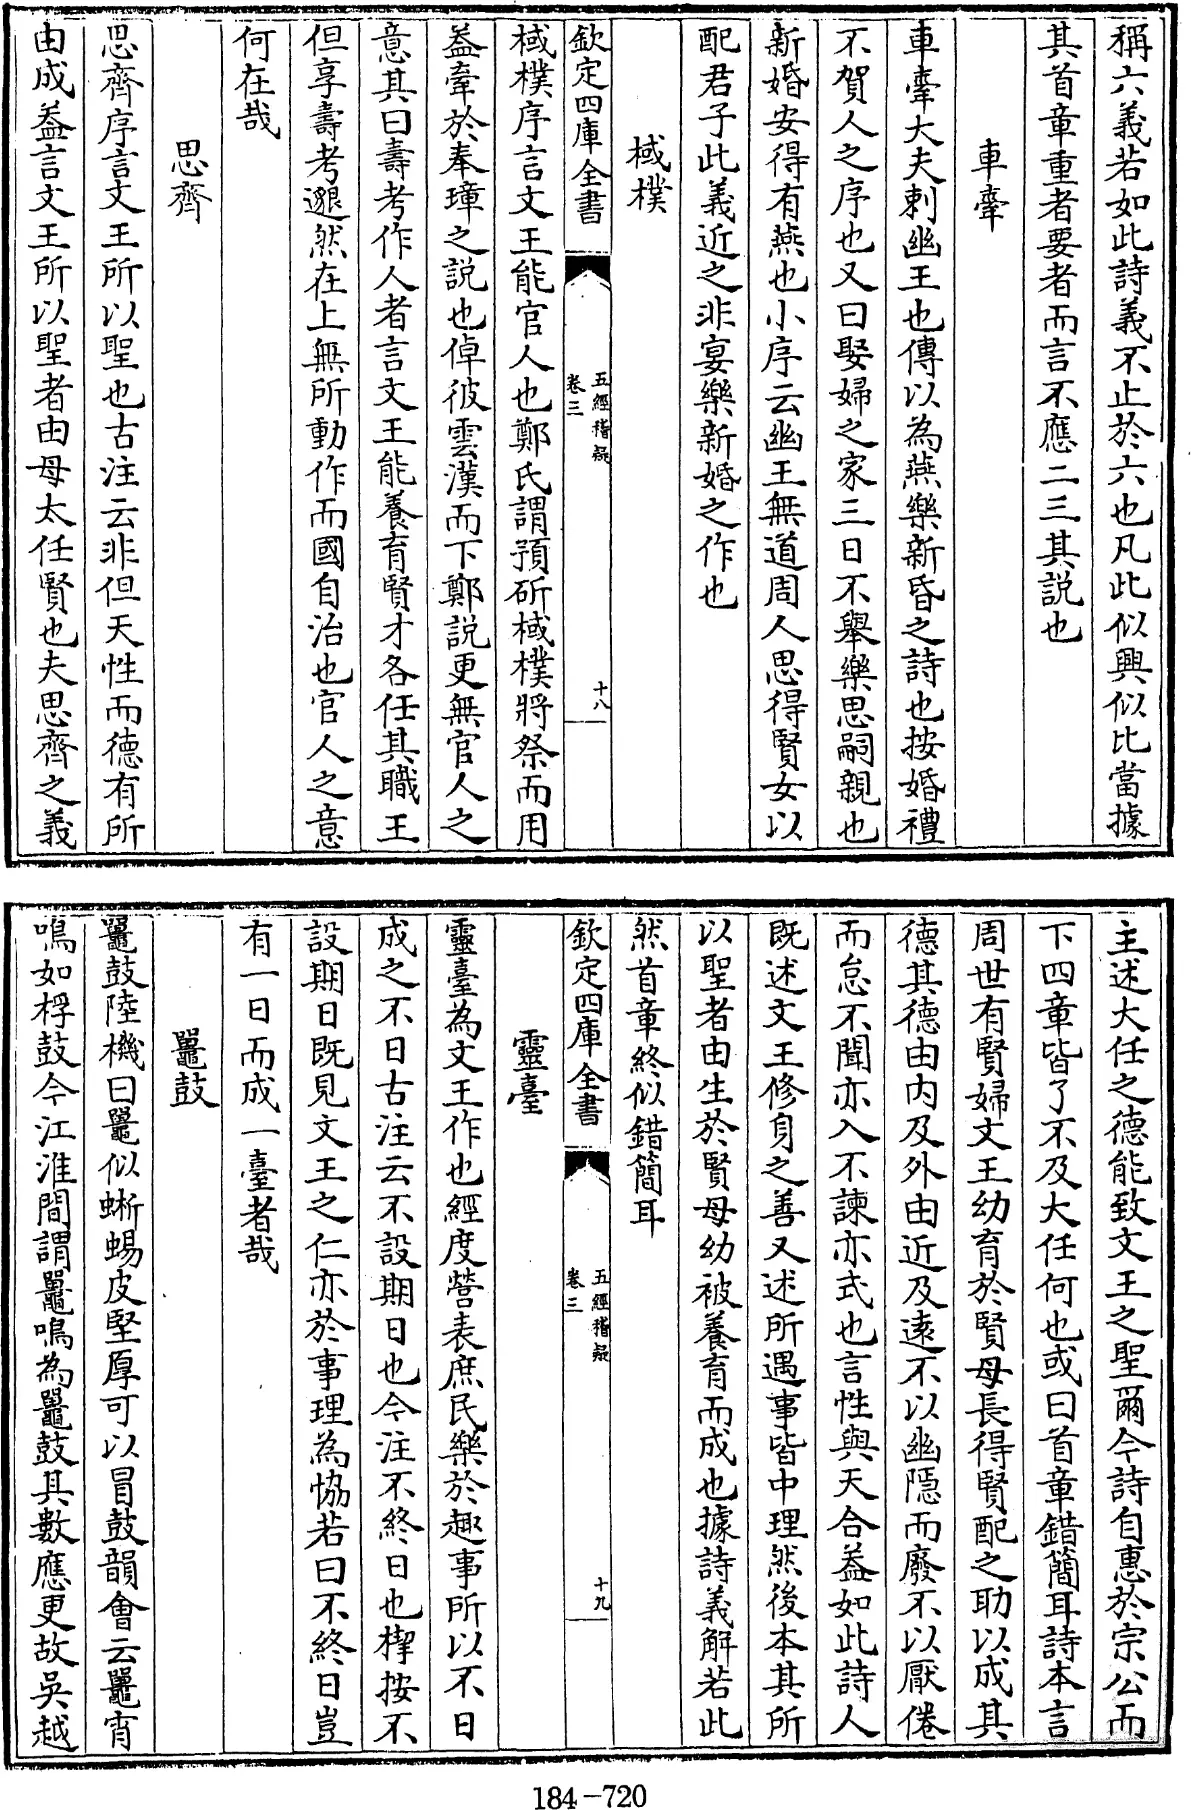 稱六義若如此詩義不止於六也凡此似興似比當據
其首章重者要者而言不應二三其説也
車舝
車舝大夫刺幽王也傳以為燕樂新昏之詩也按婚禮
不賀人之序也又曰娶婦之家三日不舉樂思嗣親也
新婚安得有燕也小序云幽王無道周人思得賢女以
配君子此義近之非宴樂新婚之作也
棫樸
欽定四庫全書
五經稽疑
卷三
十八
棫樸序言文王能官人也鄭氏謂預斫棫樸將祭而用
葢牽於奉璋之説也倬彼雲漢而下鄭説更無官人之
意其曰壽考作人者言文王能養育賢才各任其職王
但享壽考邈然在上無所動作而國自治也官人之意
何在哉
思齊
思齊序言文王所以聖也古注云非但天性而德有所
由成葢言文王所以聖者由母太任賢也夫思齊之義
主述大任之德能致文王之聖爾今詩自惠於宗公而
下四章皆了不及大任何也或曰首章錯簡耳詩本言
周世有賢婦文王幼育於賢母長得賢配之助以成其
德其德由内及外由近及遠不以幽隠而廢不以厭倦
而怠不聞亦入不諫亦式也言性與天合葢如此詩人
既述文王修身之善又述所遇事皆中理然後本其所
以聖者由生於賢母幼被養育而成也據詩義解若此
然首章終似錯簡耳
欽定四庫全書
五經稽疑
卷三
十九
靈臺
靈臺為文王作也經度營表庶民樂於趣事所以不日
成之不日古注云不設期日也今注不終日也楎按不
設期日既見文王之仁亦於事理為協若曰不終日豈
有一日而成一臺者哉
鼉鼓
鼉鼓陸機曰鼉似蜥蜴皮堅厚可以冒鼓韻會云鼉宵
鳴如桴鼓今江淮間謂鼉鳴為鼉鼓其數應更故吳越
184-720